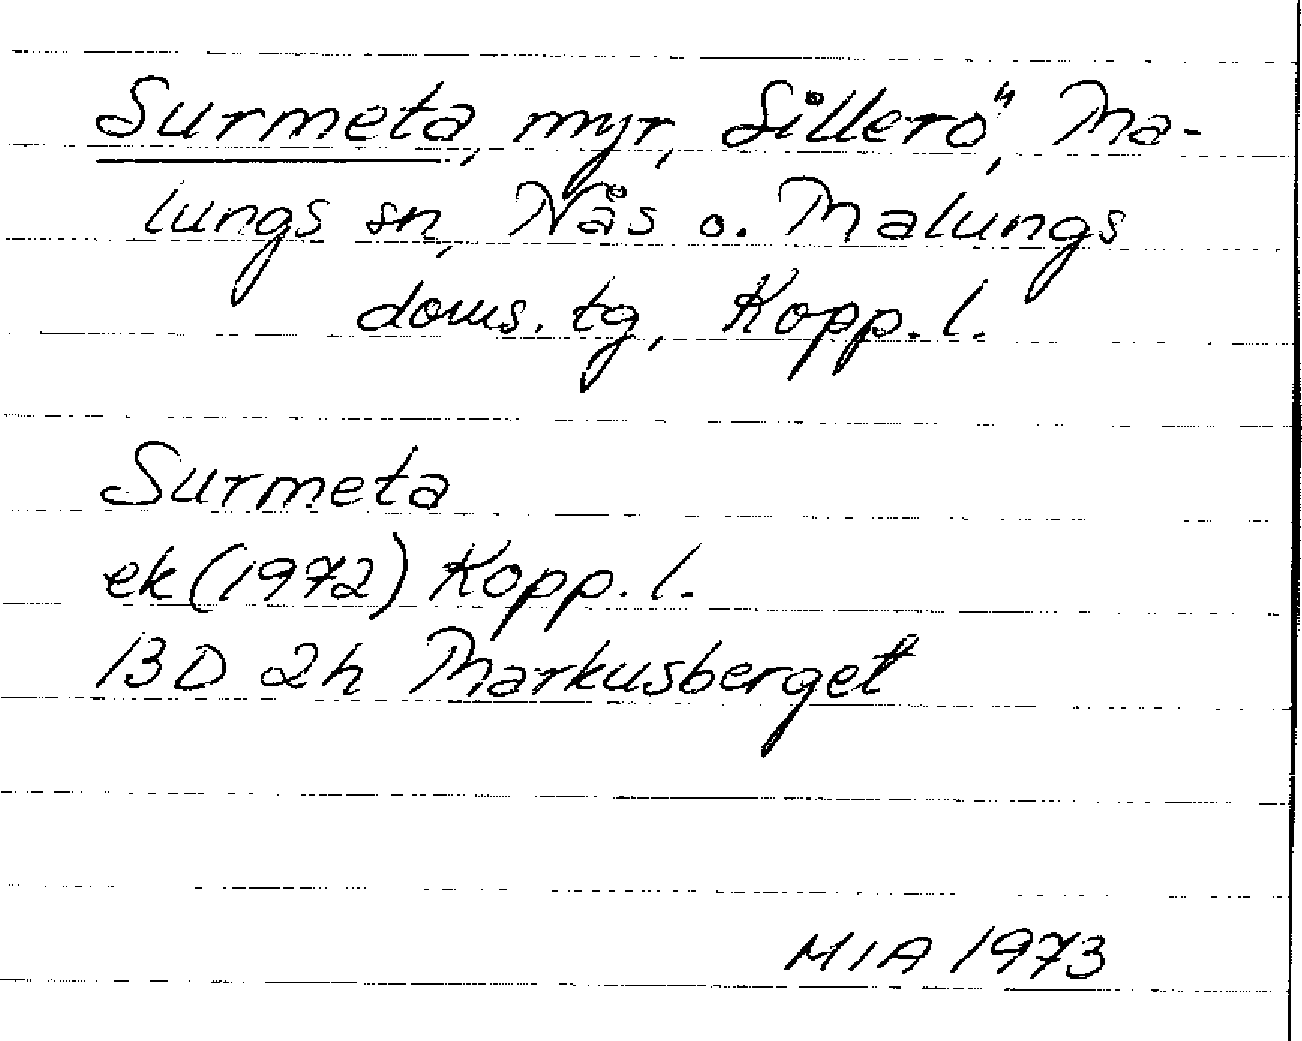 Surmeta, myr, Sillerö, Ma-
lungs sn, Nås o. Malungs
doms. tg, Kopp. l.
Surmeta
ek (1972) Kopp. l.
13 D 2h Markusberget
MIA 1973